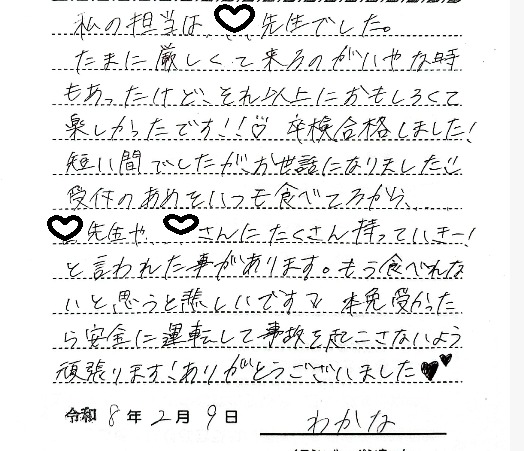 私の担当は、先生でした。
たまに厳しくて来るのがいやな時
もあったけど、それ以上におもしろくて
楽しかったです!!♡ 卒検合格しました!
短い間でしたが、お世話になりました
受付のあめをいつも食べてるから、
先生や、さんにたくさん持っていきー!
と言われた事があります。もう食べれな
いと思うと悲しいです 本免受かった
ら安全に運転して事故を起こさないよう
頑張ります!ありがとうございました♥♥
令和8年2月9日
わかな